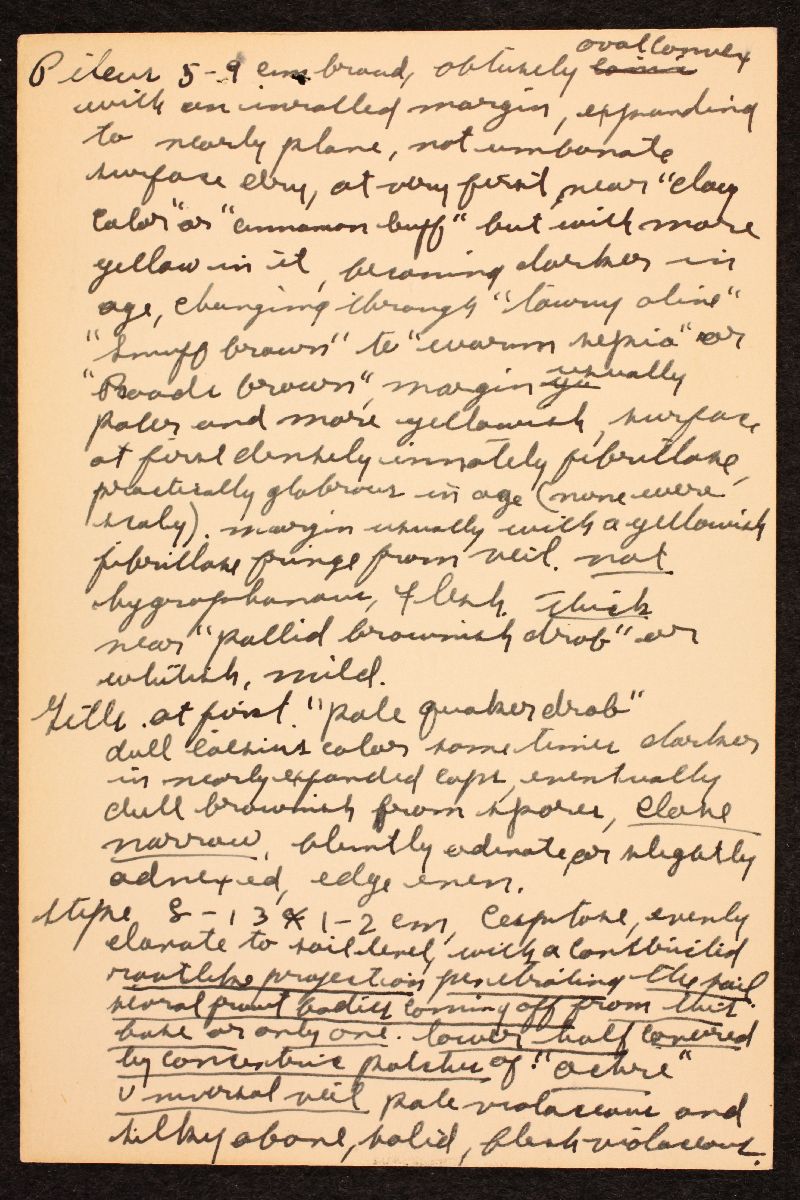 Pileus 5-9 cm broad, obtusely conic oval convex
with an inrolled margin, expanding
to nearly plane, not umbonate
surface dry, at very first near "clay
color" or "cinnamon buff" but with more
yellow in it, becoming darker in
age, changing through "tawny olive"
"snuff brown" to "warm sepia" or
"Roods brown", margin usually
paler and more yellowish, surface
at first densely innately fibrillose,
practically glabrous in age (none were
scaly). margin usually with a yellowish
fibrillose fringe from veil. not
hygrophanous, flesh thick
near "pallid brownish drab" or
whitish, mild.
Gills at first "pale quaker drab"
dull caesius color sometimes darker
in nearly expanded caps, eventually
dull brownish from spores, close
narrow, bluntly adnate or slightly
adnexed, edge even.
Stipe 8-13 x 1-2 cm, cespitose, evenly
clavate to soil level, with a constricted
rootlike projection penetrating the soil
several fruit bodies coming off from this
base or only one. lower half covered
by concentric patches of "ochre"
universal veil pale violaceous and
silky above, solid, flesh violaceous.